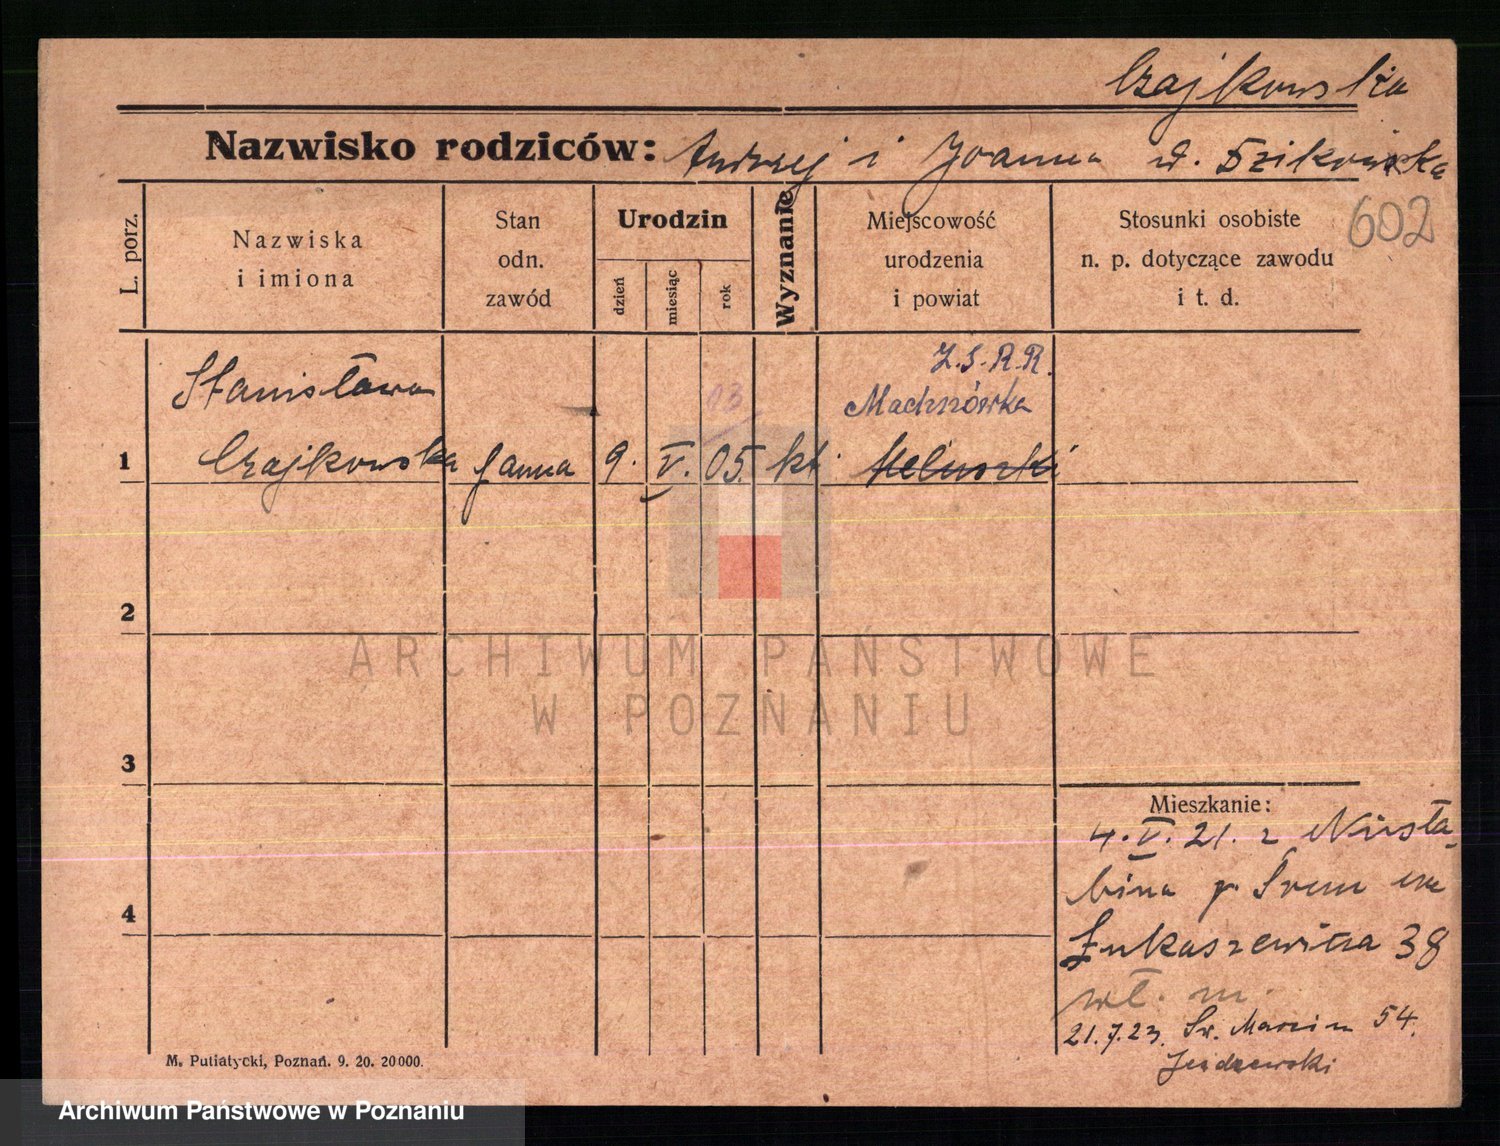 Czajkowska
Nazwisko rodziców: Andrzej i Joanna
L. porz.
Nazwiska
i imiona
Stan
odn.
zawód
Urodzin
dzień
miesiąc
rok
Wyznanie
Miejscowość
urodzenia
i powiat
Stosunki osobiste
n. p. dotyczące zawodu
i t. d.
602
Z.S.R.R.
Stanisława 03. Machnówka
1 Czajkowska panna 9. V. 05. kt.
2
ARCHIWUM PAŃSTWOWE
W POZNANIU
3
Mieszkanie:
4. V. 21. z
bina p. Śrem
4
Łukaszewicza 38
wł. m.
21.7.23. Św. Marcin 54.
M. Putiatycki, Poznań. 9. 20. 20000.
Archiwum Państwowe w Poznaniu